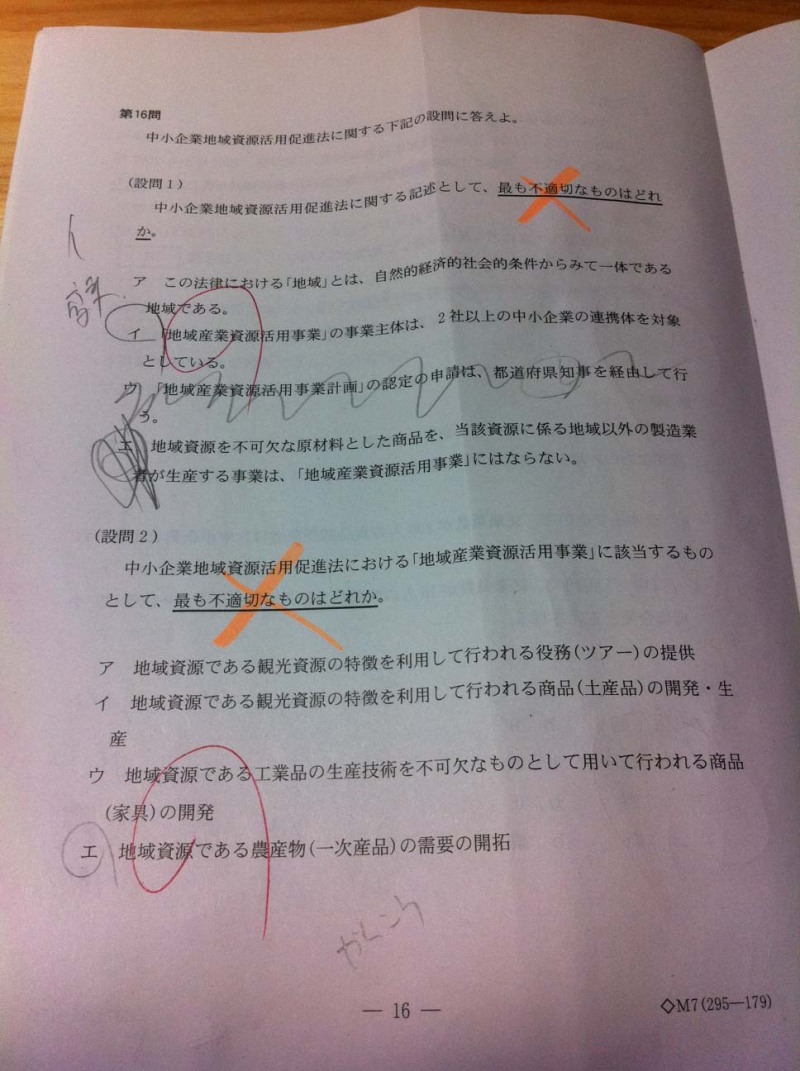 第16問
中小企業地域資源活用促進法に関する下記の設問に答えよ。
(設問1)
中小企業地域資源活用促進法に関する記述として、最も不適切なものはどれ
か。
ア この法律における「地域」とは、自然的経済的社会的条件からみて一体である
地域である。
イ 「地域産業資源活用事業」の事業主体は、2社以上の中小企業の連携体を対象
としている。
ウ 「地域産業資源活用事業計画」の認定の申請は、都道府県知事を経由して行
う。
エ 地域資源を不可欠な原材料とした商品を、当該資源に係る地域以外の製造業
者が生産する事業は、「地域産業資源活用事業」にはならない。
(設問2)
中小企業地域資源活用促進法における「地域産業資源活用事業」に該当するもの
として、最も不適切なものはどれか。
ア 地域資源である観光資源の特徴を利用して行われる役務(ツアー)の提供
イ 地域資源である観光資源の特徴を利用して行われる商品(土産品)の開発・生
産
ウ 地域資源である工業品の生産技術を不可欠なものとして用いて行われる商品
(家具)の開発
エ 地域資源である農産物(一次産品)の需要の開拓
— 16 —
◇M7(295—179)